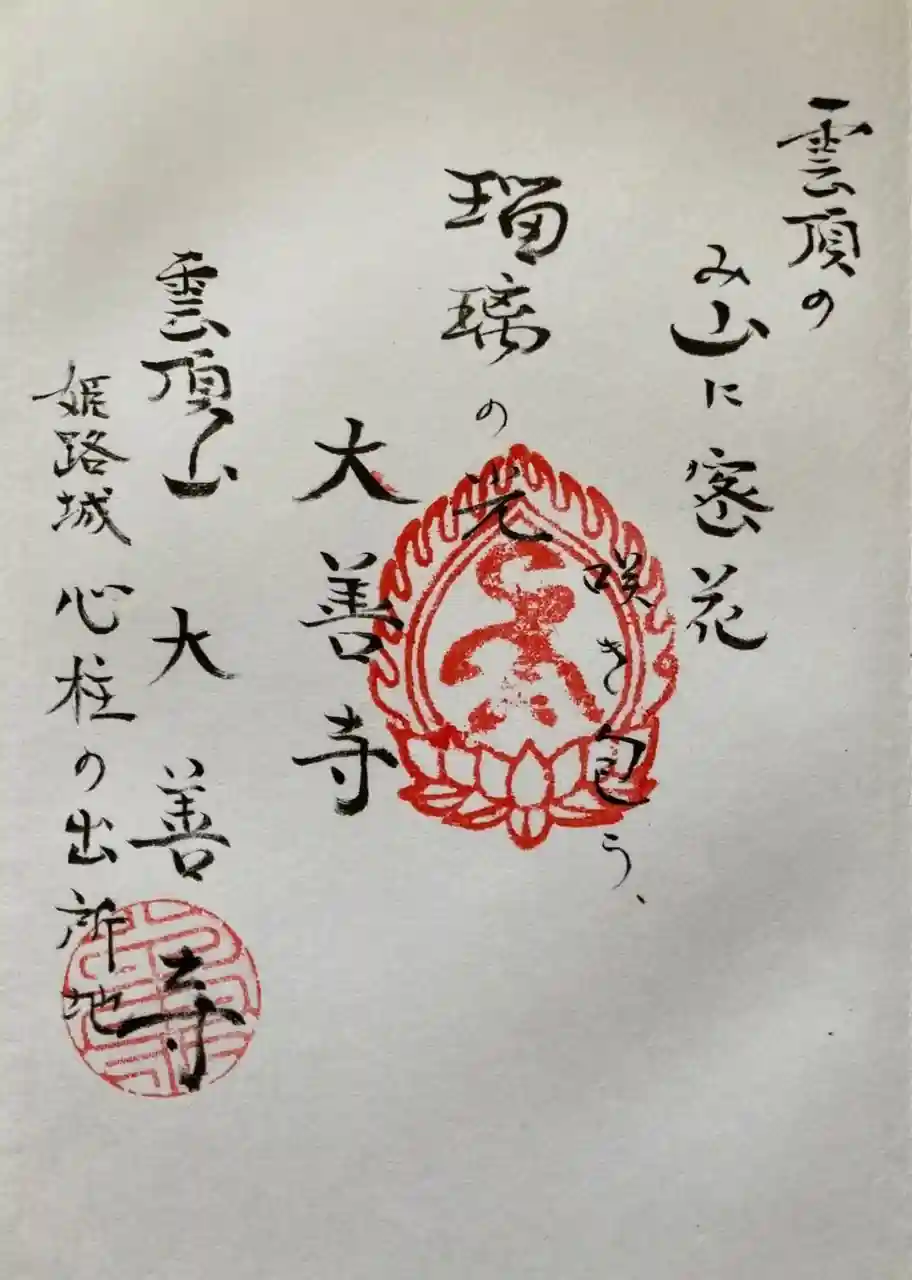 雲頂の
み山に密花
咲き匂う、
瑠璃の光
大善寺
雲頂山 大善寺
姫路城 心柱の出所地